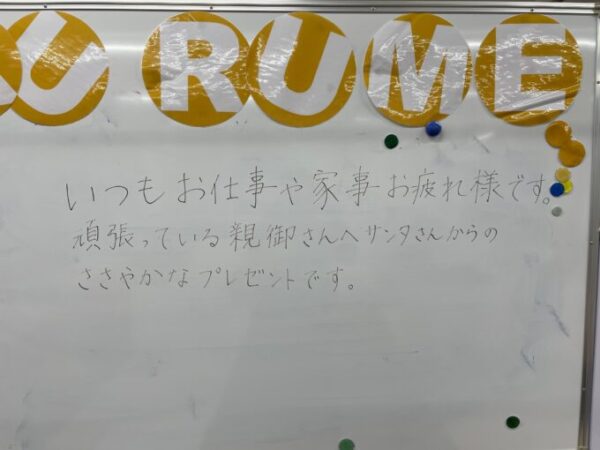 U RUME
いつもお仕事や家事お疲れ様です。
頑張っている親御さんへサンタさんからの
ささやかなプレゼントです。